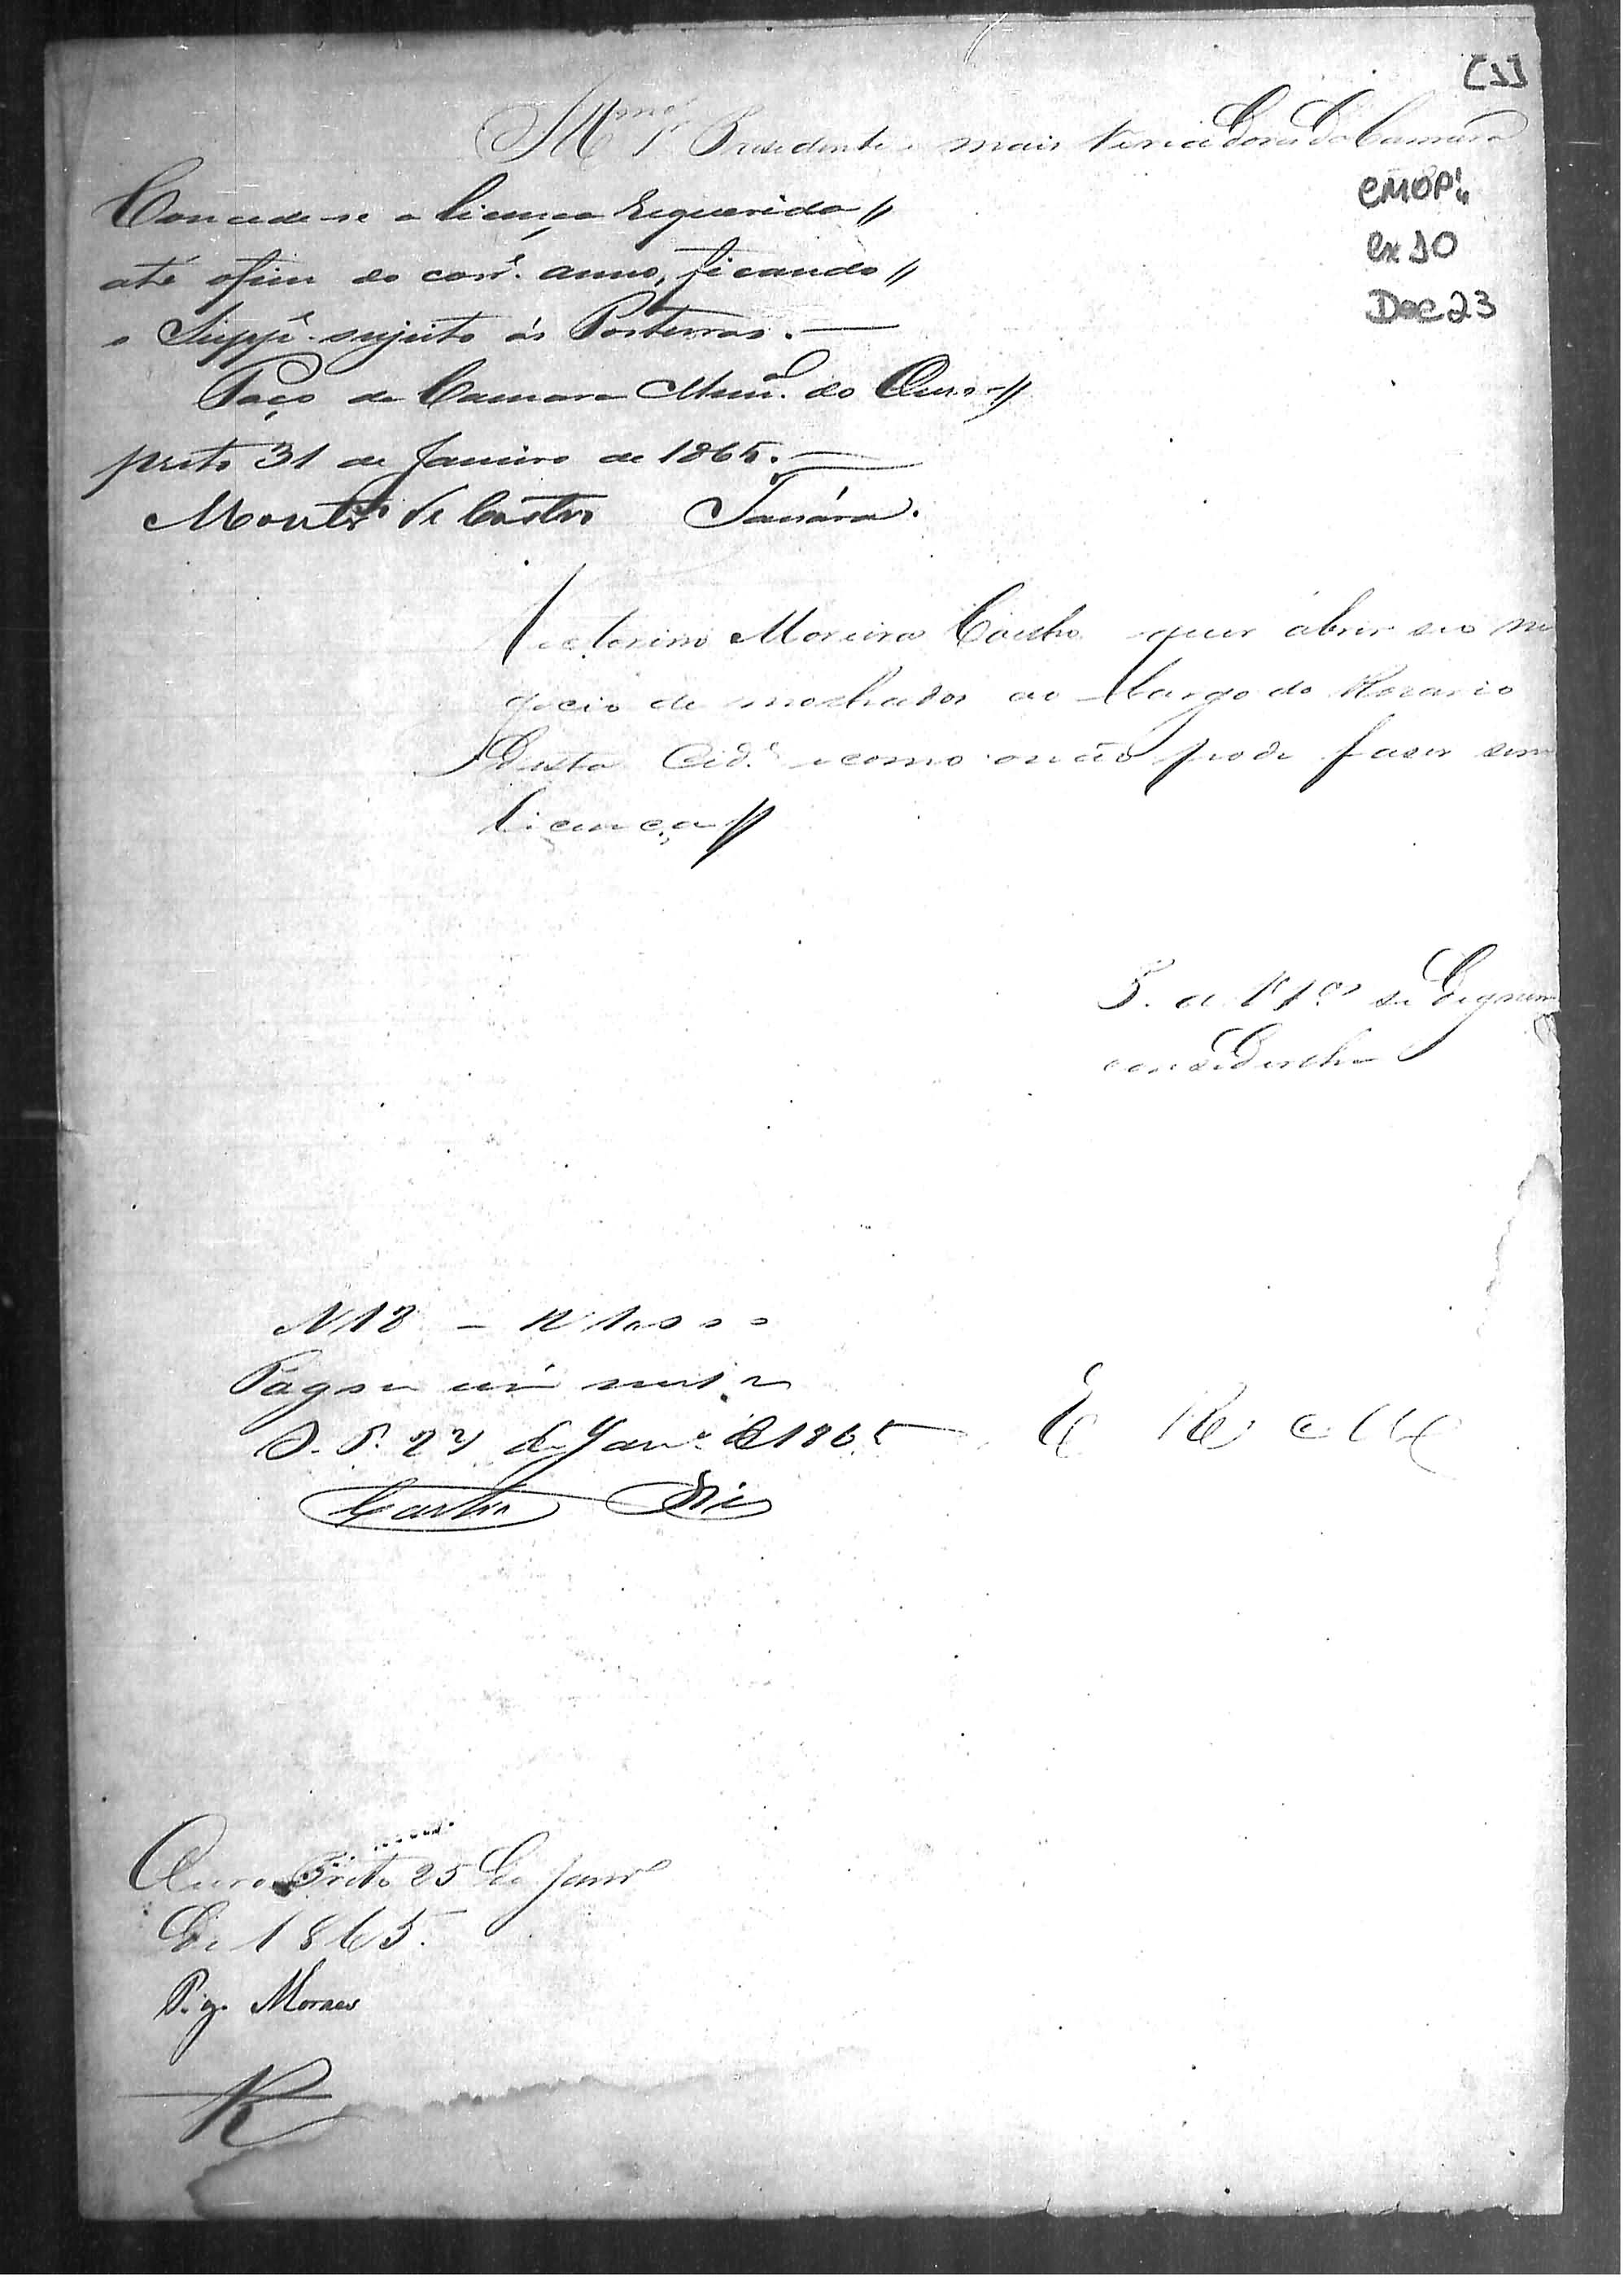 [1]
Presidente e mais Veriadores da Camara
CMOP
Cx 10
Doc 23
Concede-se a licença requerida //
até ofim do corr.e anno, ficando //
o Supp.e sujeito ás Posturas. —
Paço da Camara Mun.al do Ouro-//
preto 31 de Janeiro de 1865. —
Montr.o de Castro
Victorino Moreira Coelho quer abrir seo ne
gocio de molhados ao Largo do Rosario
desta Cid.e ecomo onão pode faser sem
licença //
P. a VV.Sas se dignem
conceder lha
N 18 —
Pagou
O. P. 27 de Janr.o de 1865
E R M
Castro
Ouro Preto 25 de Janr.o
de 1865.
P. g. Moraes
R